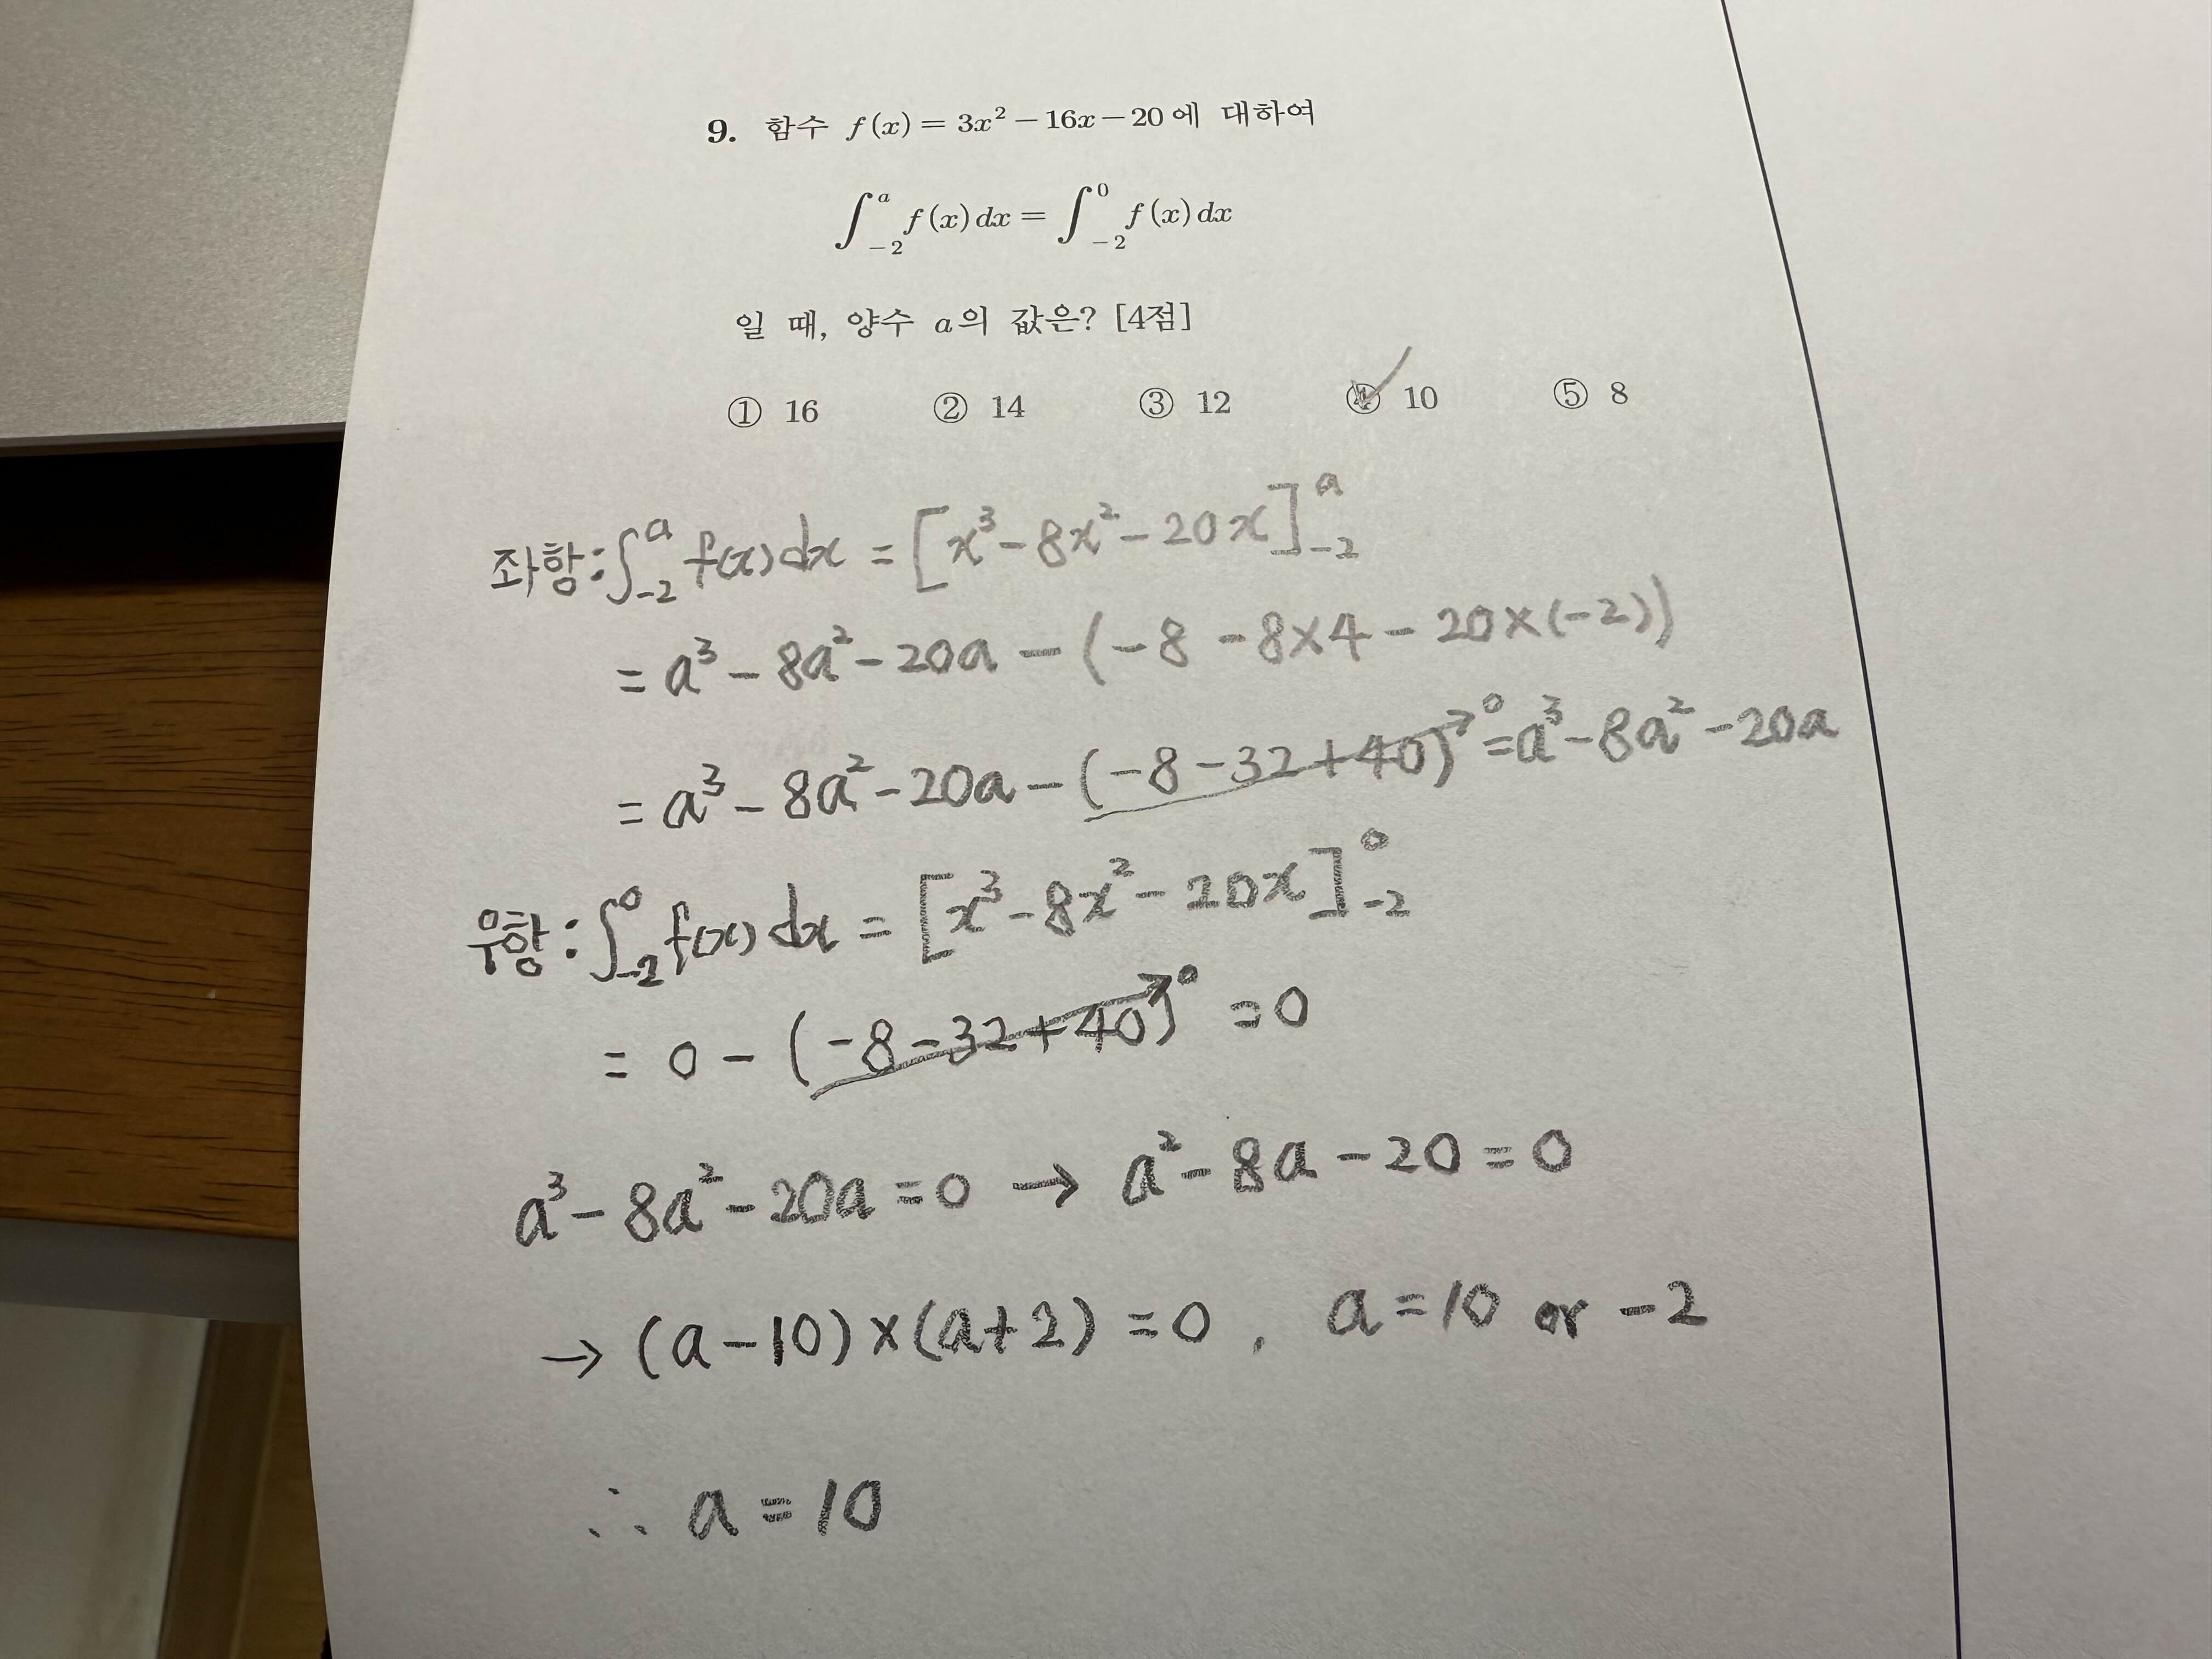 9. 함수 f(x) = 3x² − 16x − 20에 대하여
∫₋₂ᵃ f(x)dx = ∫₋₂⁰ f(x)dx
일 때, 양수 a의 값은? [4점]
① 16 ② 14 ③ 12 ④ 10 ⑤ 8
좌항: ∫₋₂ᵃ f(x)dx = [x³ − 8x² − 20x]₋₂ᵃ
= a³ − 8a² − 20a − (−8 − 8×4 − 20×(−2))
= a³ − 8a² − 20a − (−8 − 32 + 40)→0 = a³ − 8a² − 20a
우항: ∫₋₂⁰ f(x)dx = [x³ − 8x² − 20x]₋₂⁰
= 0 − (−8 − 32 + 40)→0 = 0
a³ − 8a² − 20a = 0 → a² − 8a − 20 = 0
→ (a − 10)×(a + 2) = 0, a = 10 or −2
∴ a = 10